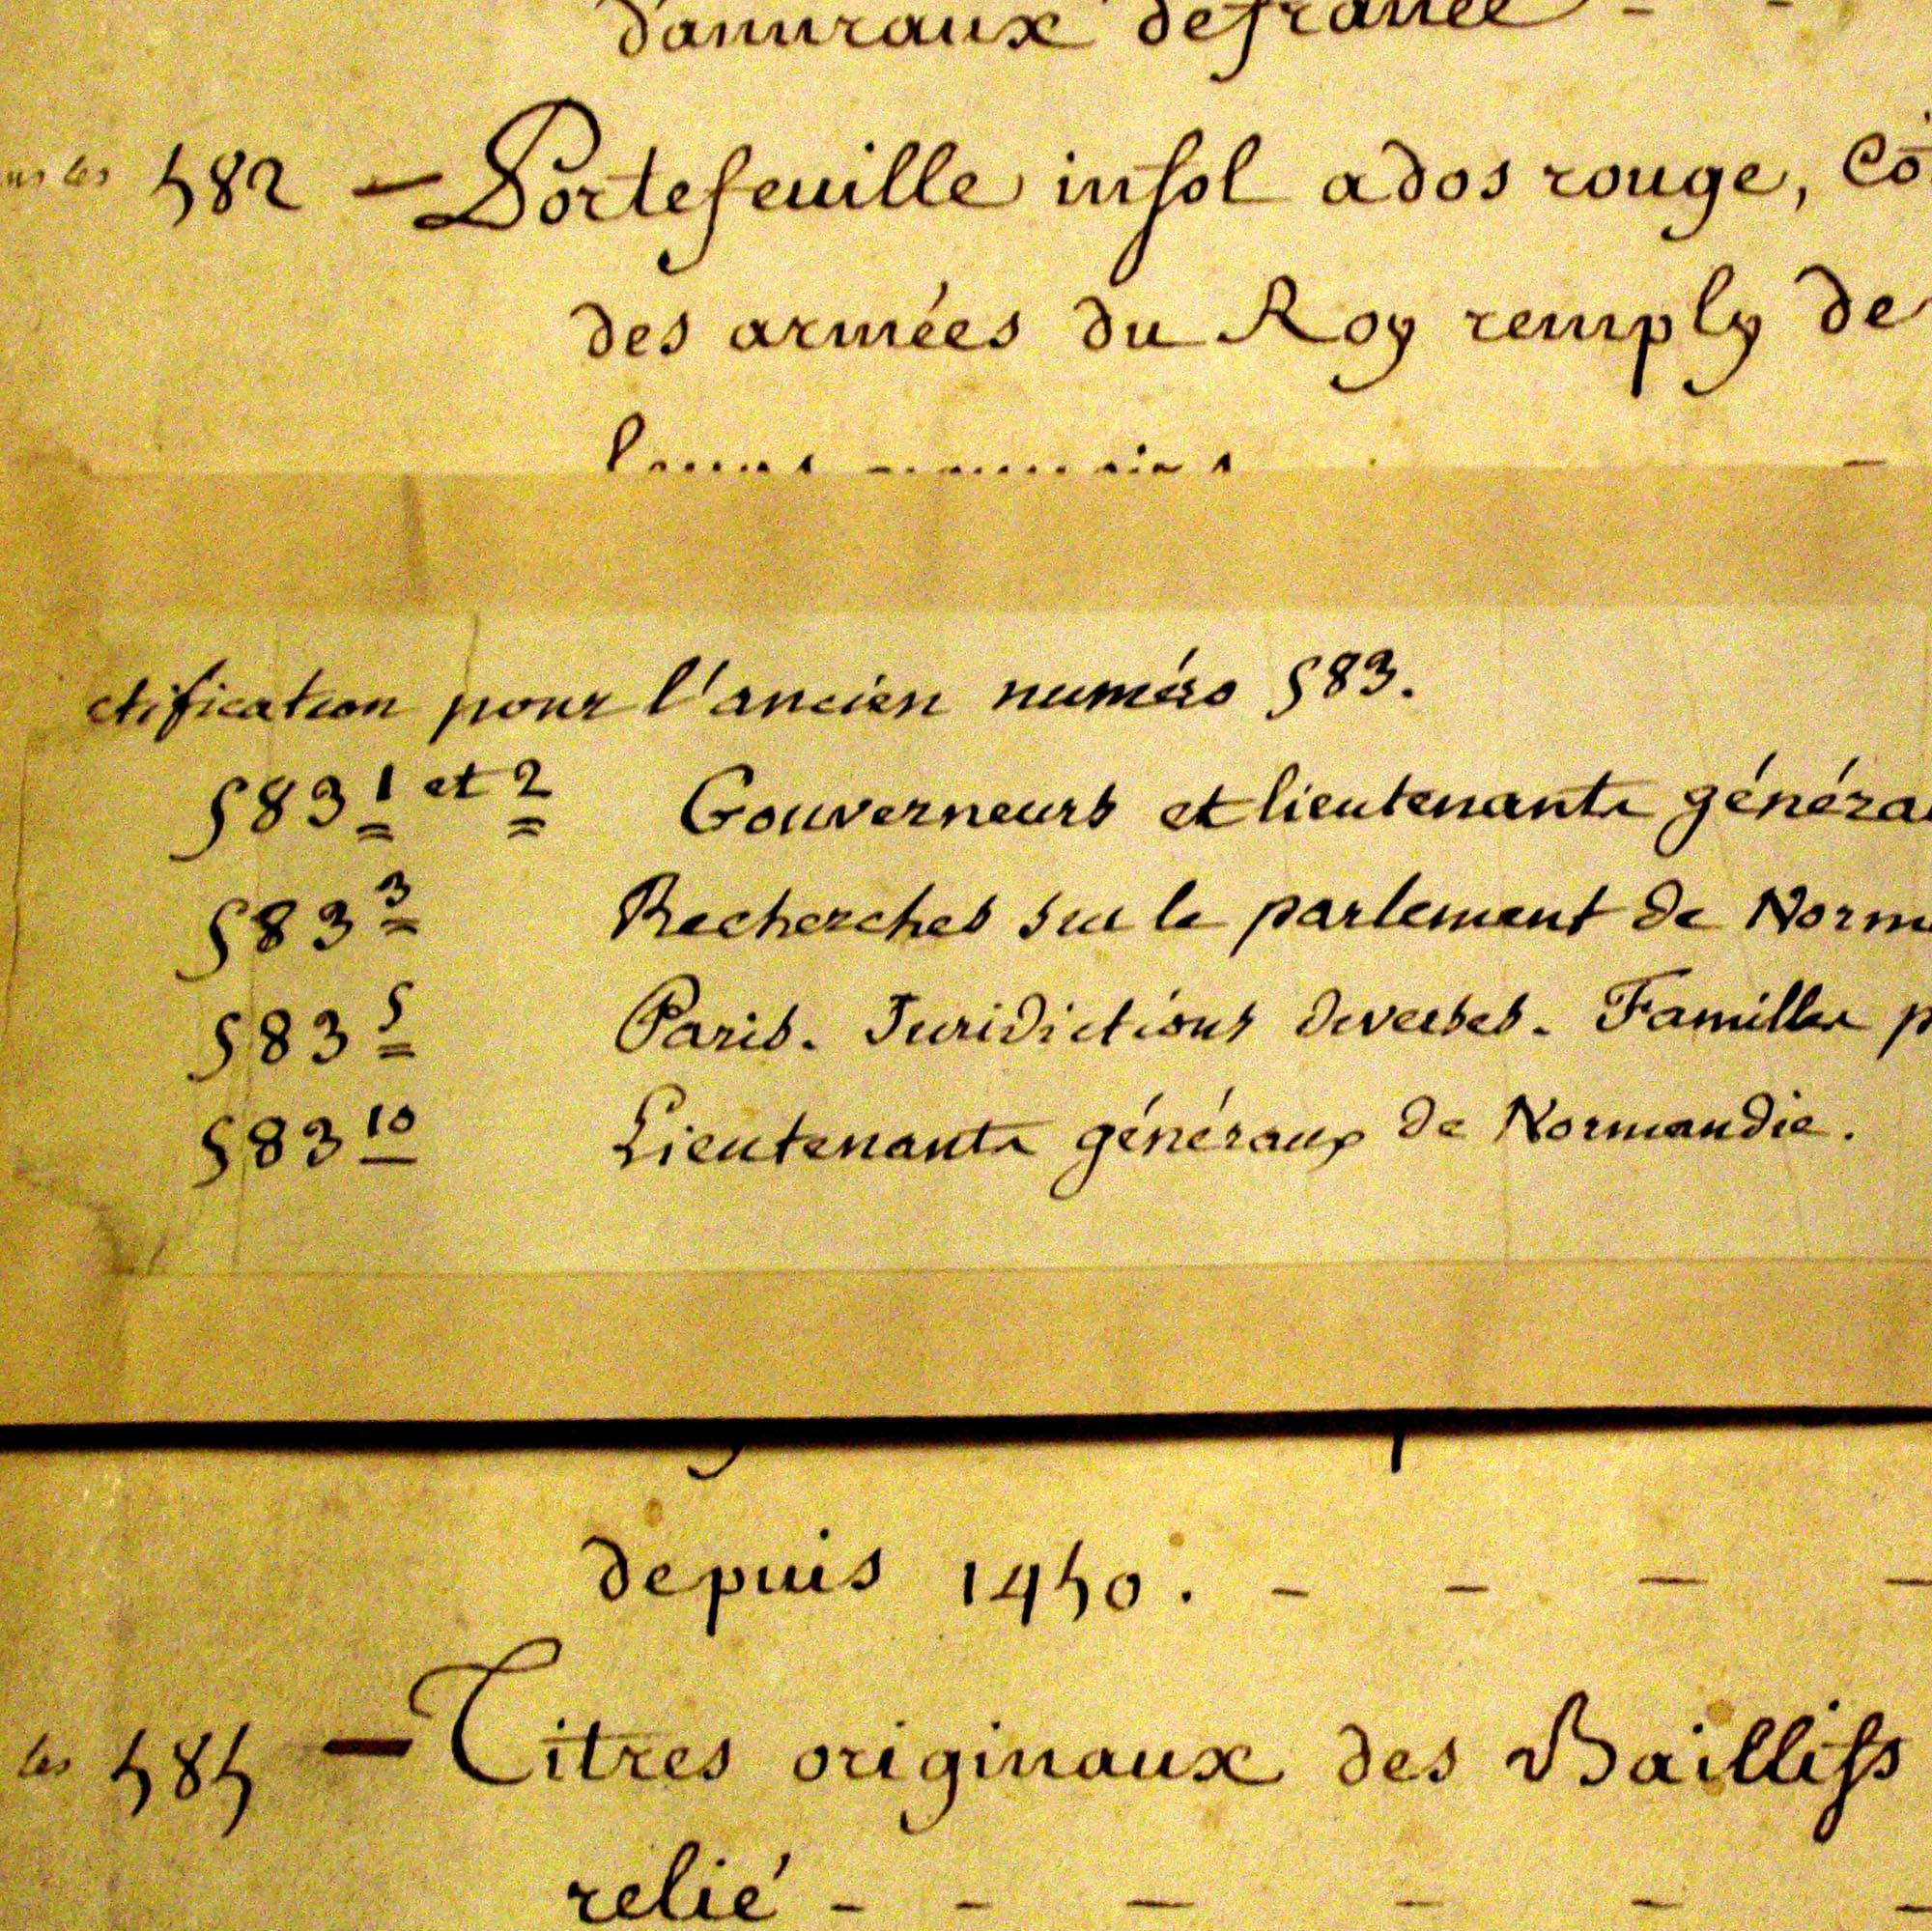 d'amiraux de france - -
582 — Portefeuille infol a dos rouge,
des armées du Roy remply de
ctification pour l'ancien numéro 583.
583 1 et 2 Gouverneurs et lieutenants généra
583 3 Recherches sur le parlement de Norm
583 5 Paris. Juridictions diverses. Familles p
583 10 Lieutenants généraux de Normandie.
depuis 1450. - - - -
les 585 — Titres originaux des Baillifs
relié - - - - - -